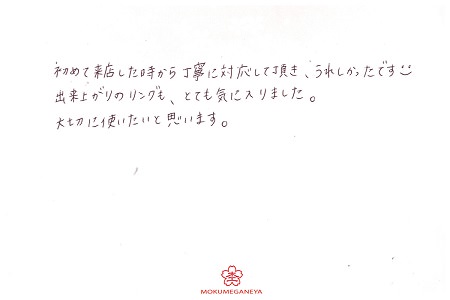 初めて来店した時から丁寧に対応して頂き、うれしかったです
出来上がりのリングも、とても気に入りました。
大切に使いたいと思います。
MOKUMEGANEYA